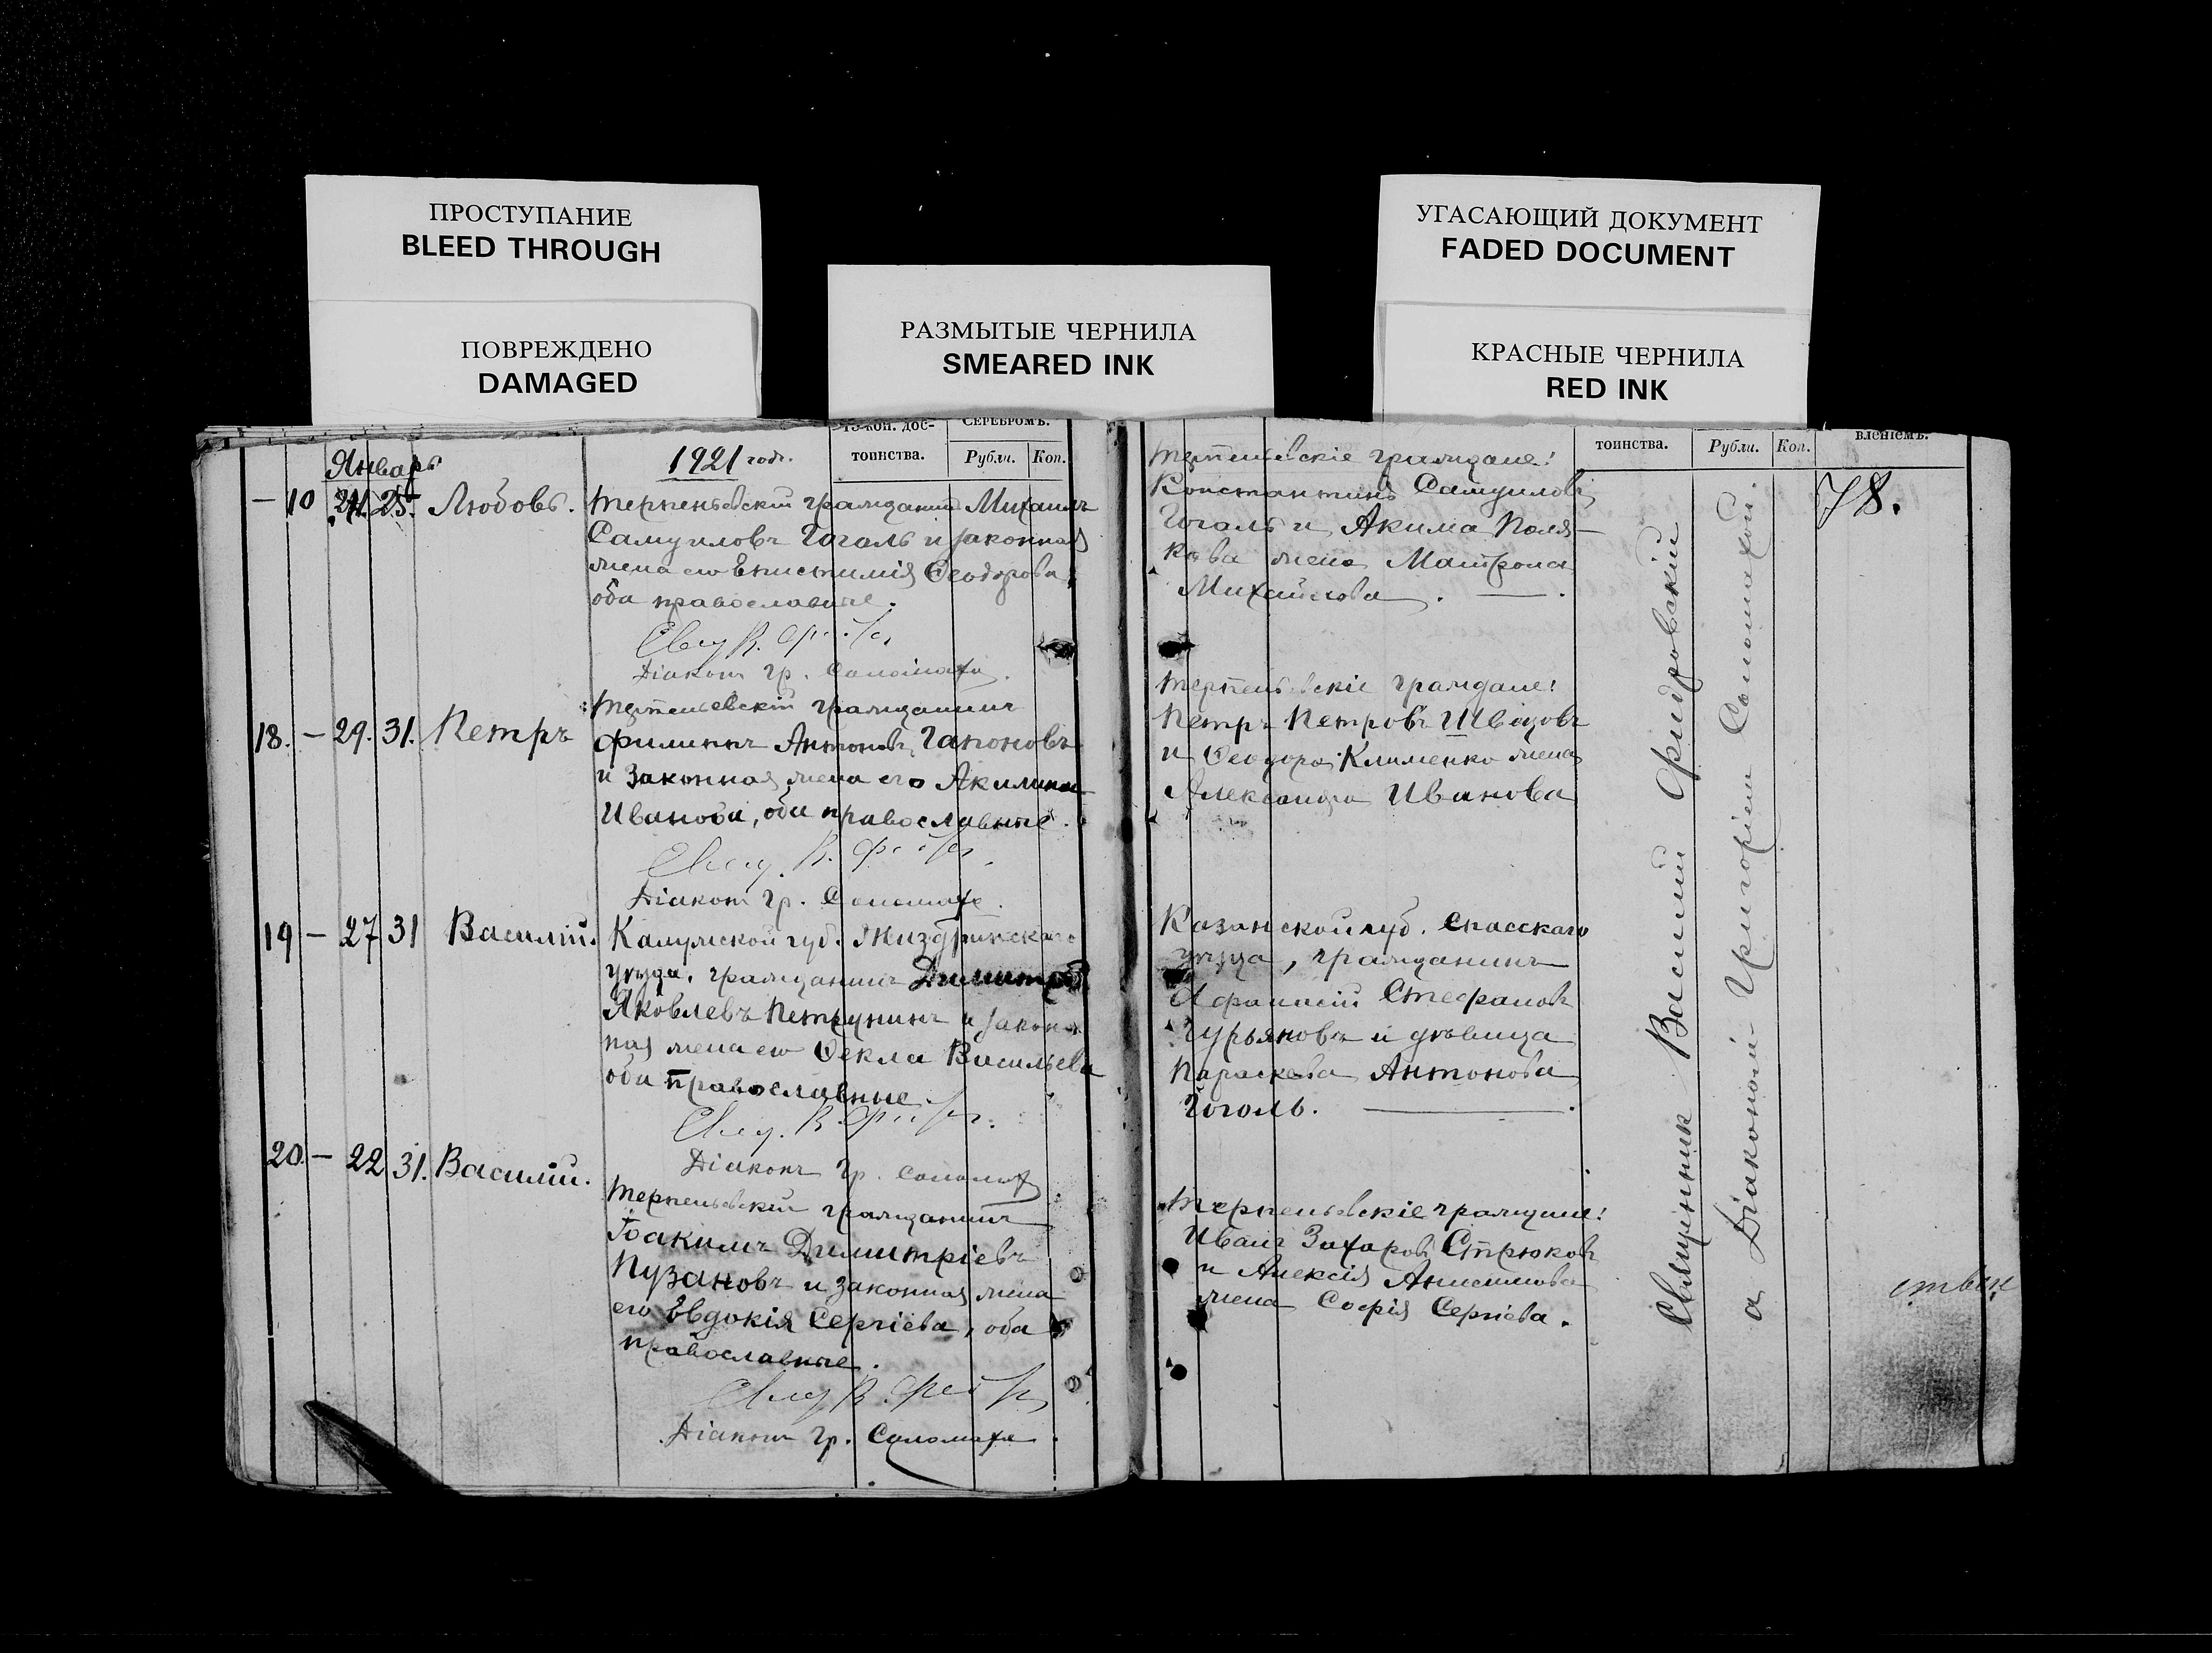 ПРОСТУПАНИЕ
BLEED THROUGH
ПОВРЕЖДЕНО
DAMAGED
РАЗМЫТЫЕ ЧЕРНИЛА
SMEARED INK
УГАСАЮЩИЙ ДОКУМЕНТ
FADED DOCUMENT
КРАСНЫЕ ЧЕРНИЛА
RED INK
коп. дос-
тоинства.
СЕРЕБРОМЪ.
Рубли. Коп.
Январь
1921 годъ.
— 10 24. 25. Любовь. Терпеньевскій гражданинъ Михаилъ
Самуиловъ Гоголь и законная
жена его Епистимія Ѳеодорова,
оба православные.
Діаконъ Гр. Соломаха.
18. — 29. 31. Петръ
Терпеньевскій гражданинъ
Филиппъ Антоновъ Гапоновъ
и законная жена его Акилина
Иванова, оба православные.
Діаконъ Гр. Соломаха.
19 — 27 31 Василій. Калужской губ. Жиздринскаго
уѣзда, гражданинъ Димитрій
Яковлевъ Петрунинъ и закон-
ная жена его Ѳекла Васильева
оба православные.
Діаконъ Гр. Соломаха
20. — 22 31. Василій.
Терпеньевскій гражданинъ
Іоакимъ Димитріевъ
Пузановъ и законная жена
его Евдокія Сергіева, оба
православные.
Діаконъ Гр. Соломаха
тоинства. Рубли. Коп. вленіемъ.
78.
Терпеньевскіе граждане:
Константинъ Самуиловъ
Гоголь и Акима Поля-
кова жена Матрона
Михайлова.
Терпеньевскіе граждане:
Петръ Петровъ Шведовъ
и Ѳеодора Клименко жена
Александра Иванова
Казанской губ. Спасскаго
уѣзда, гражданинъ
Афанасій Стефановъ
Гурьяновъ и дѣвица
Параскева Антонова
Гоголь.
Терпеньевскіе граждане:
Иванъ Захаровъ Стрюковъ
и Алексія Анисимова
жена Софія Сергіева.
Священникъ Василій
а Діакономъ Григоріемъ Соломахой.